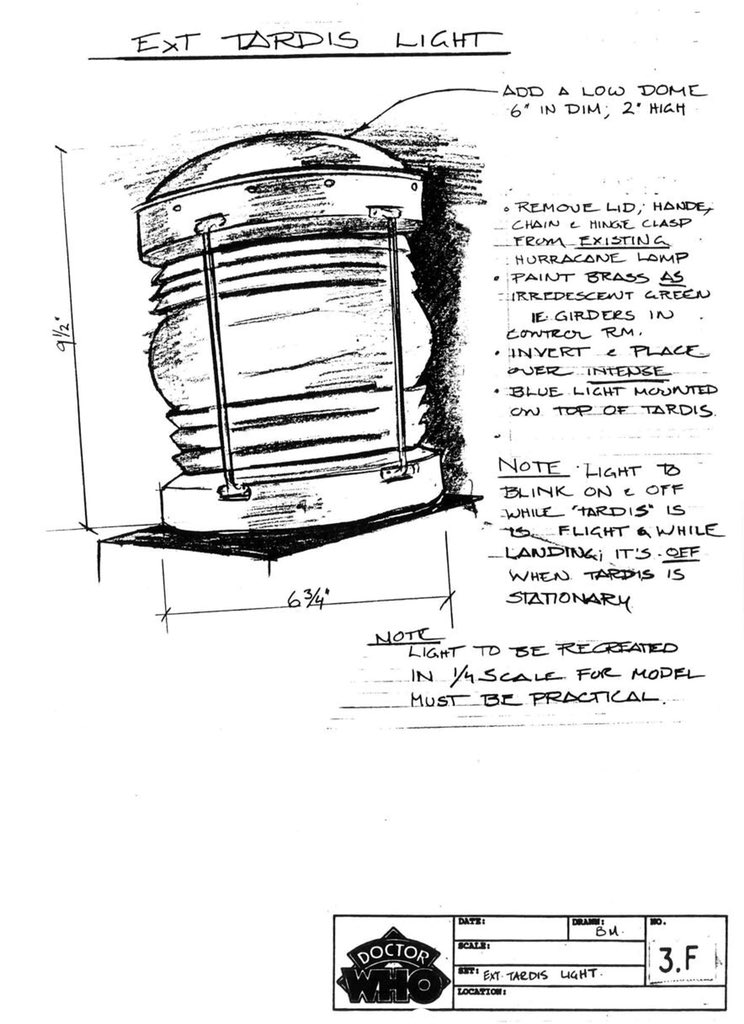 EXT TARDIS LIGHT
ADD A LOW DOME
6" IN DIM; 2" HIGH
• REMOVE LID, HANDE,
CHAIN & HINGE CLASP
FROM EXISTING
HURRACANE LAMP
• PAINT BRASS AS
IRREDESCENT GREEN
IE GIRDERS IN
CONTROL RM.
• INVERT & PLACE
OVER INTENSE
• BLUE LIGHT MOUNTED
ON TOP OF TARDIS.
9½"
NOTE LIGHT TO
BLINK ON & OFF
WHILE "TARDIS" IS
IS FLIGHT & WHILE
LANDING; IT'S OFF
WHEN TARDIS IS
STATIONARY
6¾"
NOTE
LIGHT TO BE RECREATED
IN ¼ SCALE FOR MODEL
MUST BE PRACTICAL.
DOCTOR
WHO
DATE:
DRAWN: BM.
NO.
3.F
SCALE:
SET: EXT. TARDIS LIGHT.
LOCATION: